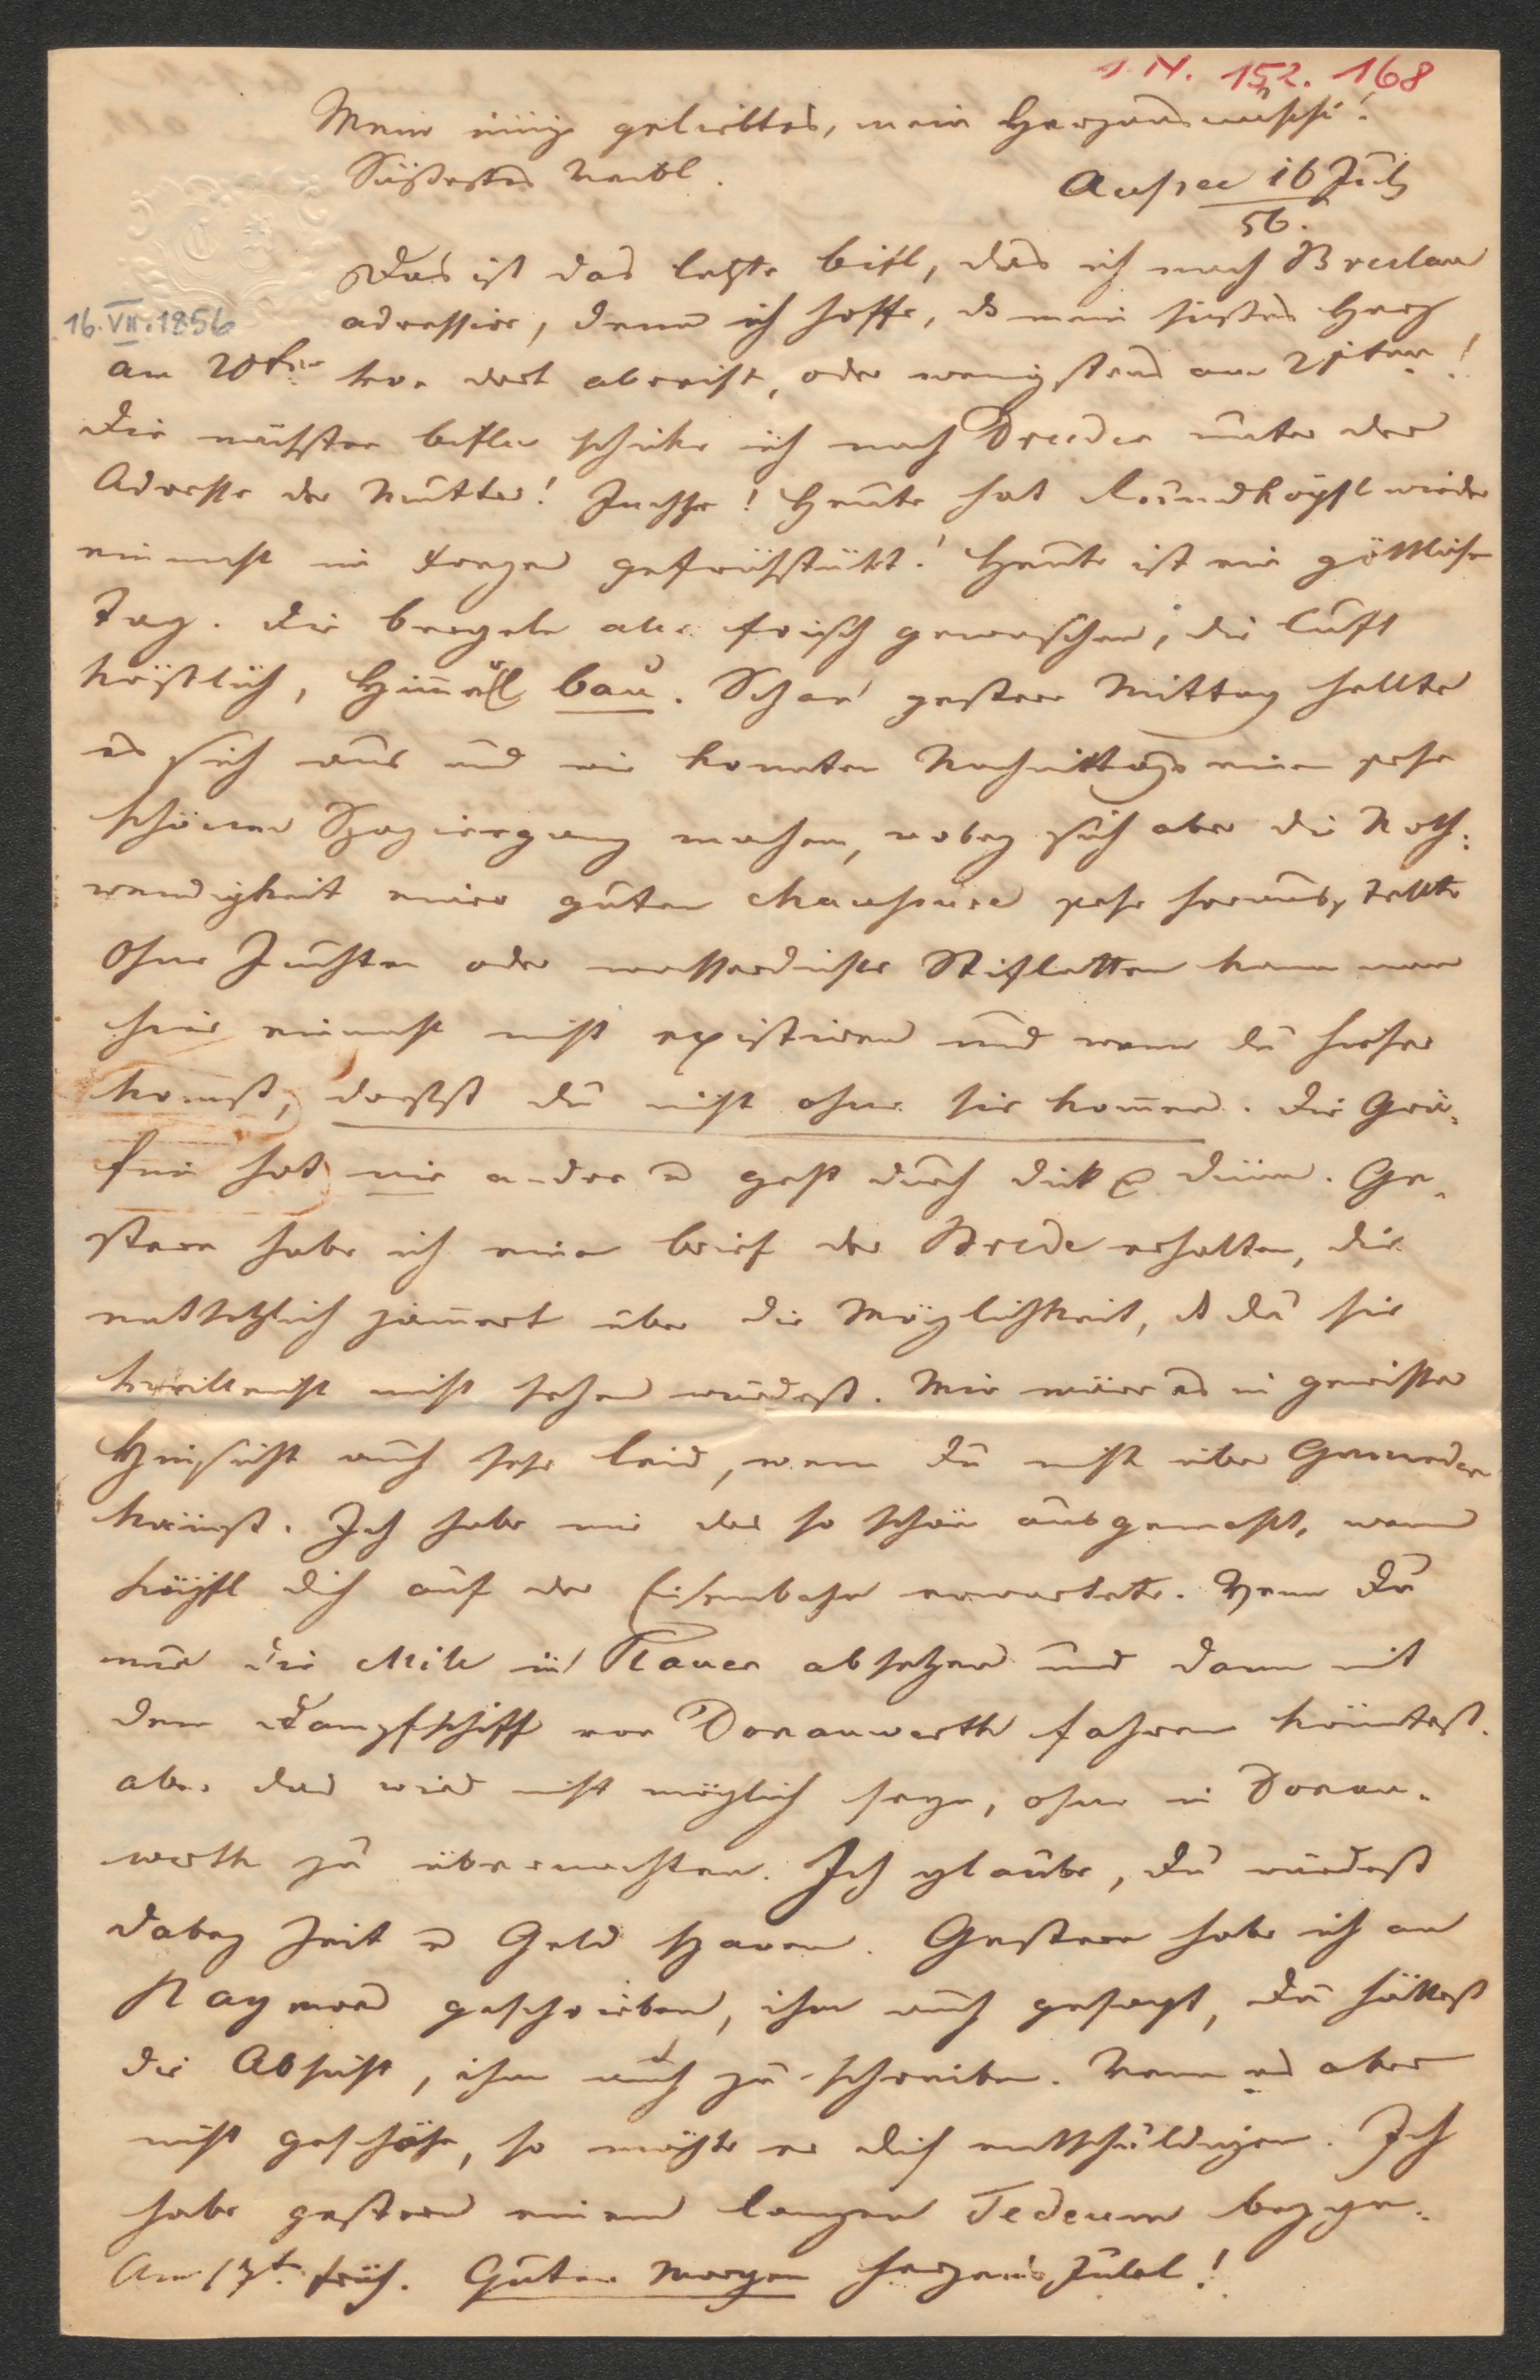 I. N. 152. 168
Mein einzig geliebtes, mein Herzensmuschi!
Süßestes Weibl.
Aussee 16 July
56.
Das ist das letzte briefl, das ich nach Breslau
16. VII. 1856
adressire, denn ich hoffe, dß mein süßes Herz
am 20ten von dort abreist, oder wenigstens am 21sten!
Die nächsten briefln schicke ich nach Dresden unter der
Adresse der Mutter! Juchhe! Heute hat Rundköpfl wieder
einmahl im freyen gefrühstükt! Heute ist ein göttlicher
Tag. Die bergeln alle frisch gewaschen, die Luft
köstlich, Himmel blau. Schon gestern Mittag hellte
es sich aus und wir konnten Nachmittags einen sehr
schönen Spaziergang machen, wobey sich aber die Noth-
wendigkeit einer guten Chaussure sehr herausstellte
Ohne Juchten oder wasserdichte Stifletten kann man
hier einmahl nicht existiren und wenn du hieher
kommst, darfst du nicht ohne sie kommen. Die Grä-
fin hat nie andre u geht durch dick & dünn. Ge-
stern habe ich einen brief der Brede erhalten, die
entsetzlich jammert über die Möglichkeit, dß du sie
vielleicht nicht sehen würdest. Mir wäre es in gewisser
Hinsicht auch sehr leid, wenn du nicht über Gmunden
kämst. Ich habe mir das so schön ausgemahlt, wenn
Köpfl dich auf der Eisenbahn erwartete. Wenn du
nur die Mile in absetzen und dann mit
dem Dampfschiff von Donauwerth fahren könntest.
aber das wird nicht möglich seyn, ohne in Donau-
werth zu übernachten. Ich glaube, du würdest
dabey Zeit u Geld sparen. Gestern habe ich an
Raymond geschrieben, ihm auch gesagt, du hättest
die Absicht, ihm auch zu schreiben. Wenn es aber
nicht geschähe, so möchte er dich entschuldigen. Ich
habe gestern einem langen Tedeum beyge-
Am 17t. früh. Guten Morgen herzens Julel!